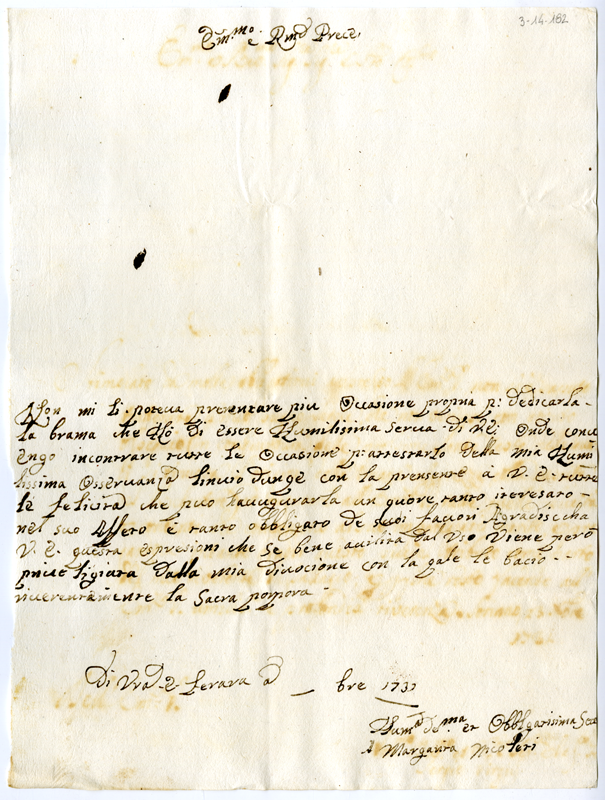 3-14-182
Em.mo e Rmd Prece;
Non mi si poteva presentare piu Occasione propria p: dedicarla-
la brama che Hò di essere Humilisima serva di V.E: Onde conv
engo incontrare tutte le Occasione p:attestarlo della mia Humi
lissima Osservanza l'invio dunqe con la prensente à V. E. tutte
le felicità che puo Haugurarla un quore tanto interesato-
nel suo Affero è tanto obbligato de suoi favori Agradischa
V. E. questa espresioni che se bene avilita dal Uso Viene però
privetigiata dalla mia divocione con la qale le bacio-
riverentamente la Sacra porpora-
Di Vrã E. ferara à _ bre 1731
Hum.a de.ma et Obbligatisima Ser
Margarita Nicoleri